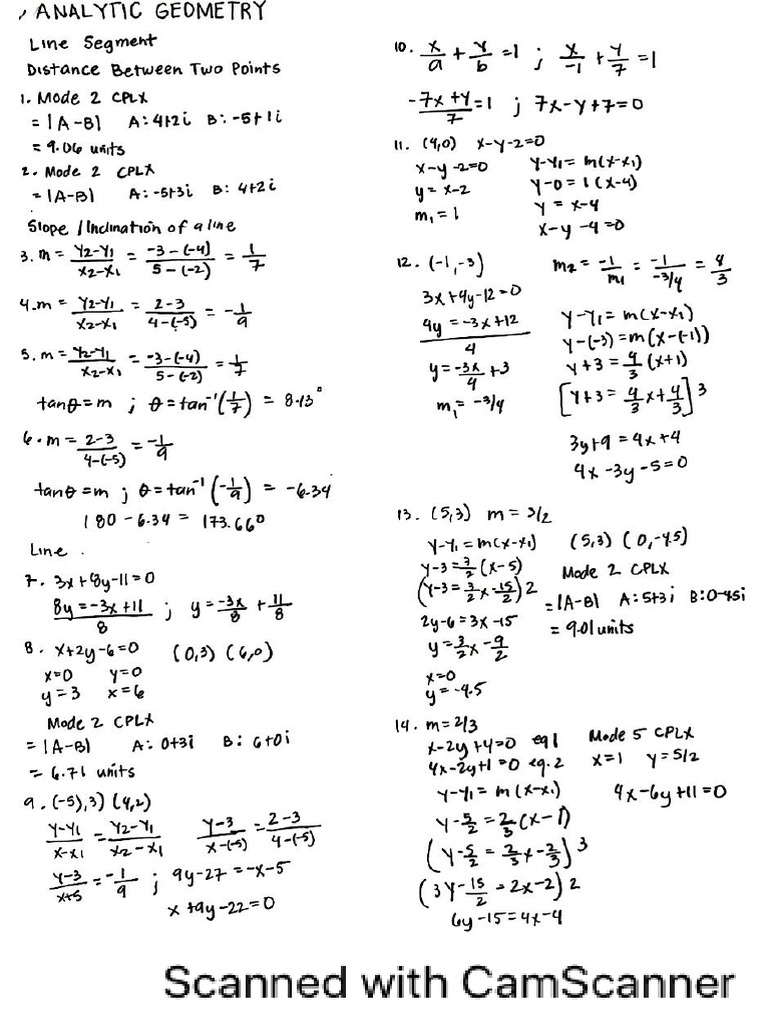 , ANALYTIC GEOMETRY
Line Segment
Distance Between Two Points
1. Mode 2 CPLX
= |A-B| A: 4+2i B: -5+1i
= 9.06 units
2. Mode 2 CPLX
= |A-B| A: -5+3i B: 4+2i
Slope / Inclination of a line
3. m = Y2-Y1/X2-X1 = -3-(-4)/5-(-2) = 1/7
4. m = Y2-Y1/X2-X1 = 2-3/4-(-5) = -1/9
5. m = Y2-Y1/X2-X1 = -3-(-4)/5-(-2) = 1/7
tanθ = m ; θ = tan⁻¹(1/7) = 8.13°
6. m = 2-3/4-(-5) = -1/9
tanθ = m ; θ = tan⁻¹(-1/9) = -6.34
180 - 6.34 = 173.66°
Line .
7. 3x+8y-11=0
8y = -3x+11/8 ; y = -3x/8 + 11/8
8. x+2y-6=0 (0,3) (6,0)
x=0 y=0
y=3 x=6
Mode 2 CPLX
= |A-B| A: 0+3i B: 6+0i
= 6.71 units
9. (-5),3) (4,2)
Y-Y1/X-X1 = Y2-Y1/X2-X1 Y-3/X-(-5) = 2-3/4-(-5)
Y-3/X+5 = -1/9 ; 9y-27 = -x-5
x+9y-22=0
10. x/a + y/b = 1 ; x/-1 + y/7 = 1
-7x+y/7 = 1 ; 7x-y+7=0
11. (4,0) x-y-2=0
x-y-2=0 Y-Y1 = m(x-x1)
y = x-2 Y-0 = 1(x-4)
m1 = 1 y = x-4
x-y-4=0
12. (-1,-3) m2 = -1/m1 = -1/-3/4 = 4/3
3x+4y-12=0
4y = -3x+12/4 Y-Y1 = m(x-x1)
Y-(-3) = m(x-(-1))
y = -3x/4 + 3 Y+3 = 4/3 (x+1)
m1 = -3/4 [Y+3 = 4/3x+4/3]3
3y+9 = 4x+4
4x-3y-5=0
13. (5,3) m = 3/2
Y-Y1 = m(x-x1) (5,3) (0,-4.5)
Y-3 = 3/2(x-5) Mode 2 CPLX
(Y-3 = 3/2x-15/2)2 = |A-B| A: 5+3i B: 0-4.5i
2y-6 = 3x-15 = 9.01 units
y = 3/2x - 9/2
x=0
y = -4.5
14. m = 2/3
x-2y+4=0 eq1 Mode 5 CPLX
4x-2y+1=0 eq.2 x=1 y=5/2
Y-Y1 = m(x-x1) 4x-6y+11=0
Y-5/2 = 2/3(x-1)
(Y-5/2 = 2/3x-2/3)3
(3Y-15/2 = 2x-2)2
6y-15=4x-4
Scanned with CamScanner